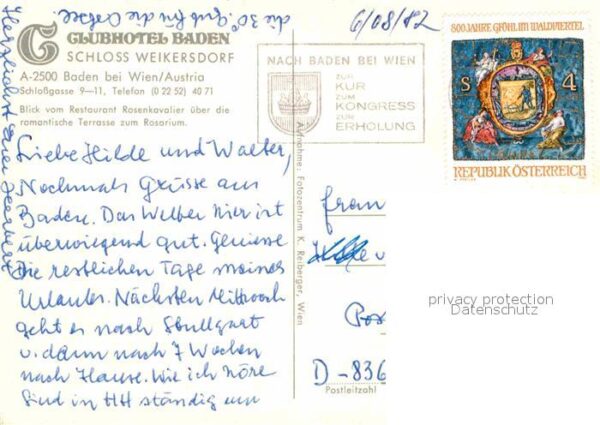 CLUBHOTEL BADEN
SCHLOSS WEIKERSDORF
A-2500 Baden bei Wien/Austria
Schloßgasse 9–11, Telefon (0 22 52) 40 71
Blick vom Restaurant Rosenkavalier über die
romantische Terrasse zum Rosarium.
Liebe Hilde und Walter,
Nochmals Grüsse aus
Baden. Das Wetter hier ist
überwiegend gut. Geniesse
die restlichen Tage meines
Urlaubs. Nächsten Mittwoch
geht es nach Stuttgart
u. dann nach 7 Wochen
nach Hause. Wie ich höre
sind in HH ständig um
die 30° Grad für die
Herzlichst Euer
Aufnahme: Fotozentrum K. Reiberger, Wien
6/08/82
NACH BADEN BEI WIEN
ZUR
KUR
ZUM
KONGRESS
ZUR
ERHOLUNG
800 JAHRE GFÖHL IM WALDVIERTEL
S 4
REPUBLIK ÖSTERREICH
u
D-836
Postleitzahl
privacy protection
Datenschutz